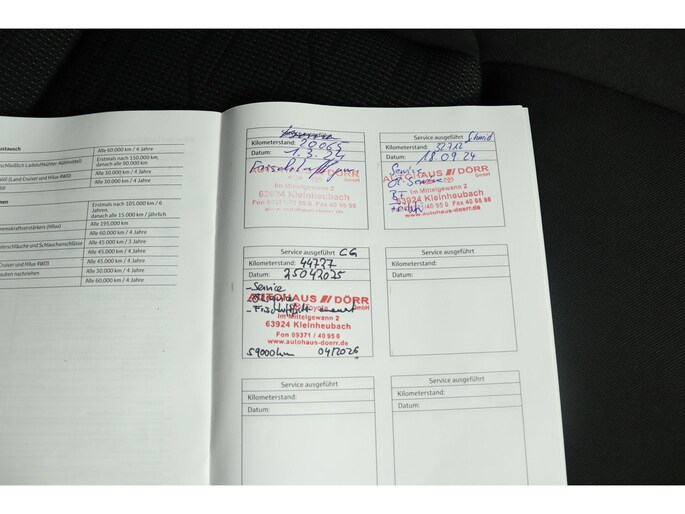 ntausch
Alle 60.000 km / 4 Jahre
schließlich Ladeluftkühler-Kühlmittel)
Erstmals nach 150.000 km,
danach alle 90.000 km
(Land Cruiser und Hilux 4WD)
Alle 30.000 km / 4 Jahre
Alle 30.000 km / 4 Jahre
nen
Erstmals nach 105.000 km / 6
Jahren,
danach alle 15.000 km / jährlich
Bremskraftverstärkers (Hilux)
Alle 195.000 km
Alle 60.000 km / 4 Jahre
Alle 45.000 km / 3 Jahre
Alle 45.000 km / 4 Jahre
Cruiser und Hilux 4WD)
Alle 45.000 km / 4 Jahre
auben nachziehen
Alle 30.000 km / 4 Jahre
Alle 60.000 km / 4 Jahre
Kilometerstand: 20065
Datum: 1.3.24
DÖRR
GmbH
Im Mittelgewann 2
63924 Kleinheubach
Fon 09371 / 40 95 0 Fax 40 95 95
Service ausgeführt Schmid
Kilometerstand: 32712
Datum: 18.09.24
Service
AUTOHAUS DÖRR
GmbH
Im Mittelgewann 2
63924 Kleinheubach
www.autohaus-doerr.de
Service ausgeführt CG
Kilometerstand: 44727
Datum: 25042025
- Service
AUTOHAUS DÖRR
Toyota GmbH
Im Mittelgewann 2
63924 Kleinheubach
Fon 09371 / 40 95 0
www.autohaus-doerr.de
59000km 04/2026
Service ausgeführt
Kilometerstand:
Datum:
Service ausgeführt
Kilometerstand:
Datum:
Service ausgeführt
Kilometerstand:
Datum: